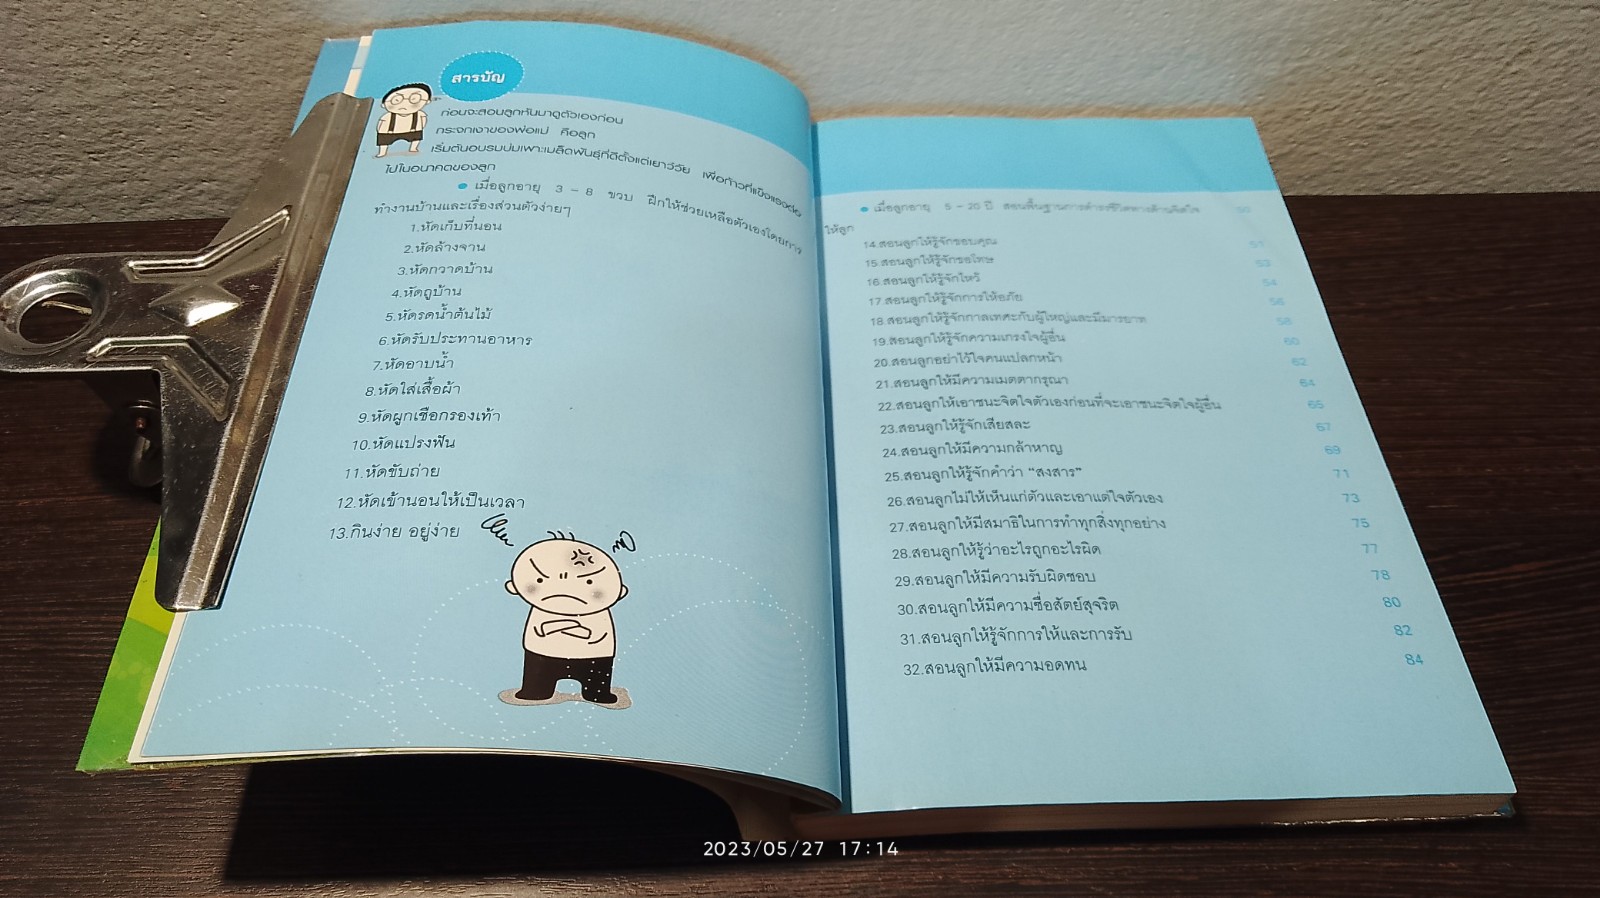 สารบัญ
ก่อนจะสอนลูกหันมาดูตัวเองก่อน
กระจกเงาของพ่อแม่ คือลูก
เริ่มต้นอบรมบ่มเพาะเมล็ดพันธุ์ที่ดีตั้งแต่เยาว์วัย เพื่อก้าวที่แข็งแรงต่อ
ไปในอนาคตของลูก
● เมื่อลูกอายุ 3 - 8 ขวบ ฝึกให้ช่วยเหลือตัวเองโดยการ
ทำงานบ้านและเรื่องส่วนตัวง่ายๆ
1.หัดเก็บที่นอน
2.หัดล้างจาน
3.หัดกวาดบ้าน
4.หัดถูบ้าน
5.หัดรดน้ำต้นไม้
6.หัดรับประทานอาหาร
7.หัดอาบน้ำ
8.หัดใส่เสื้อผ้า
9.หัดผูกเชือกรองเท้า
10.หัดแปรงฟัน
11.หัดขับถ่าย
12.หัดเข้านอนให้เป็นเวลา
13.กินง่าย อยู่ง่าย
● เมื่อลูกอายุ 5 - 20 ปี สอนพื้นฐานการดำรงชีวิตทางด้านจิตใจ
ให้ลูก
14.สอนลูกให้รู้จักขอบคุณ 51
15.สอนลูกให้รู้จักขอโทษ 53
16.สอนลูกให้รู้จักไหว้ 54
17.สอนลูกให้รู้จักการให้อภัย 56
18.สอนลูกให้รู้จักกาลเทศะกับผู้ใหญ่และมีมารยาท 58
19.สอนลูกให้รู้จักความเกรงใจผู้อื่น 60
20.สอนลูกอย่าไว้ใจคนแปลกหน้า 62
21.สอนลูกให้มีความเมตตากรุณา 64
22.สอนลูกให้เอาชนะจิตใจตัวเองก่อนที่จะเอาชนะจิตใจผู้อื่น 65
23.สอนลูกให้รู้จักเสียสละ 67
24.สอนลูกให้มีความกล้าหาญ 69
25.สอนลูกให้รู้จักคำว่า “สงสาร” 71
26.สอนลูกไม่ให้เห็นแก่ตัวและเอาแต่ใจตัวเอง 73
27.สอนลูกให้มีสมาธิในการทำทุกสิ่งทุกอย่าง 75
28.สอนลูกให้รู้ว่าอะไรถูกอะไรผิด 77
29.สอนลูกให้มีความรับผิดชอบ 78
30.สอนลูกให้มีความซื่อสัตย์สุจริต 80
31.สอนลูกให้รู้จักการให้และการรับ 82
32.สอนลูกให้มีความอดทน 84
2023/05/27 17:14